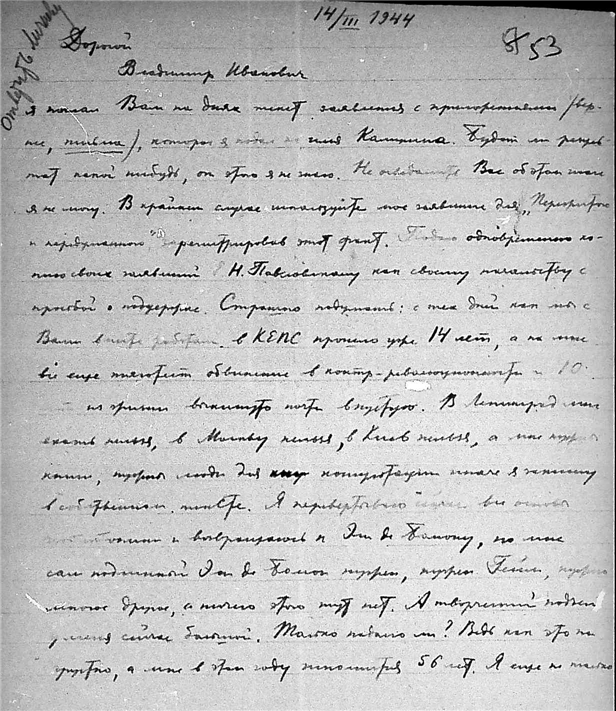 14/III 1944
53
Отвечать лично
Дорогой
Владимир Иванович
я послал Вам на днях текст заявления с приложениями (вер-
нее, письма), которое я подал на имя Калинина. Будет ли резуль-
тат какой нибудь, он этого я не знаю. Не осведомить Вас об этом шаге
я не могу. В крайнем случае используйте мое заявление для "Пережитого
и передуманного", зарегистрировав этот факт. одновременно ко-
пию своих заявлений Н. Павловскому как своему начальству с
просьбой о поддержке. Страшно подумать: с тех дней как мы с
Вами вместе работали в КЕПС прошло уже 14 лет, а на мне
всё еще тяготеет обвинение в контр-революционности и 10
из жизни выкинуто почти впустую. В Ленинград мне
ехать нельзя, в Москву нельзя, в Киев нельзя, а мне нужны
книги, нужны люди для консультации иначе я закисну
в собственном. Я перевертываю сейчас все основы
и возвращаюсь к Эли де Бомону, но мне
сам подлинный Эли де Бомон нужен, нужен нужно
многое другое, а ничего этого тут нет. А творческий подъем
у меня сейчас большой. Только надолго ли? Ведь как это ни
грустно, а мне в этом году исполнится 56 лет. Я еще не только